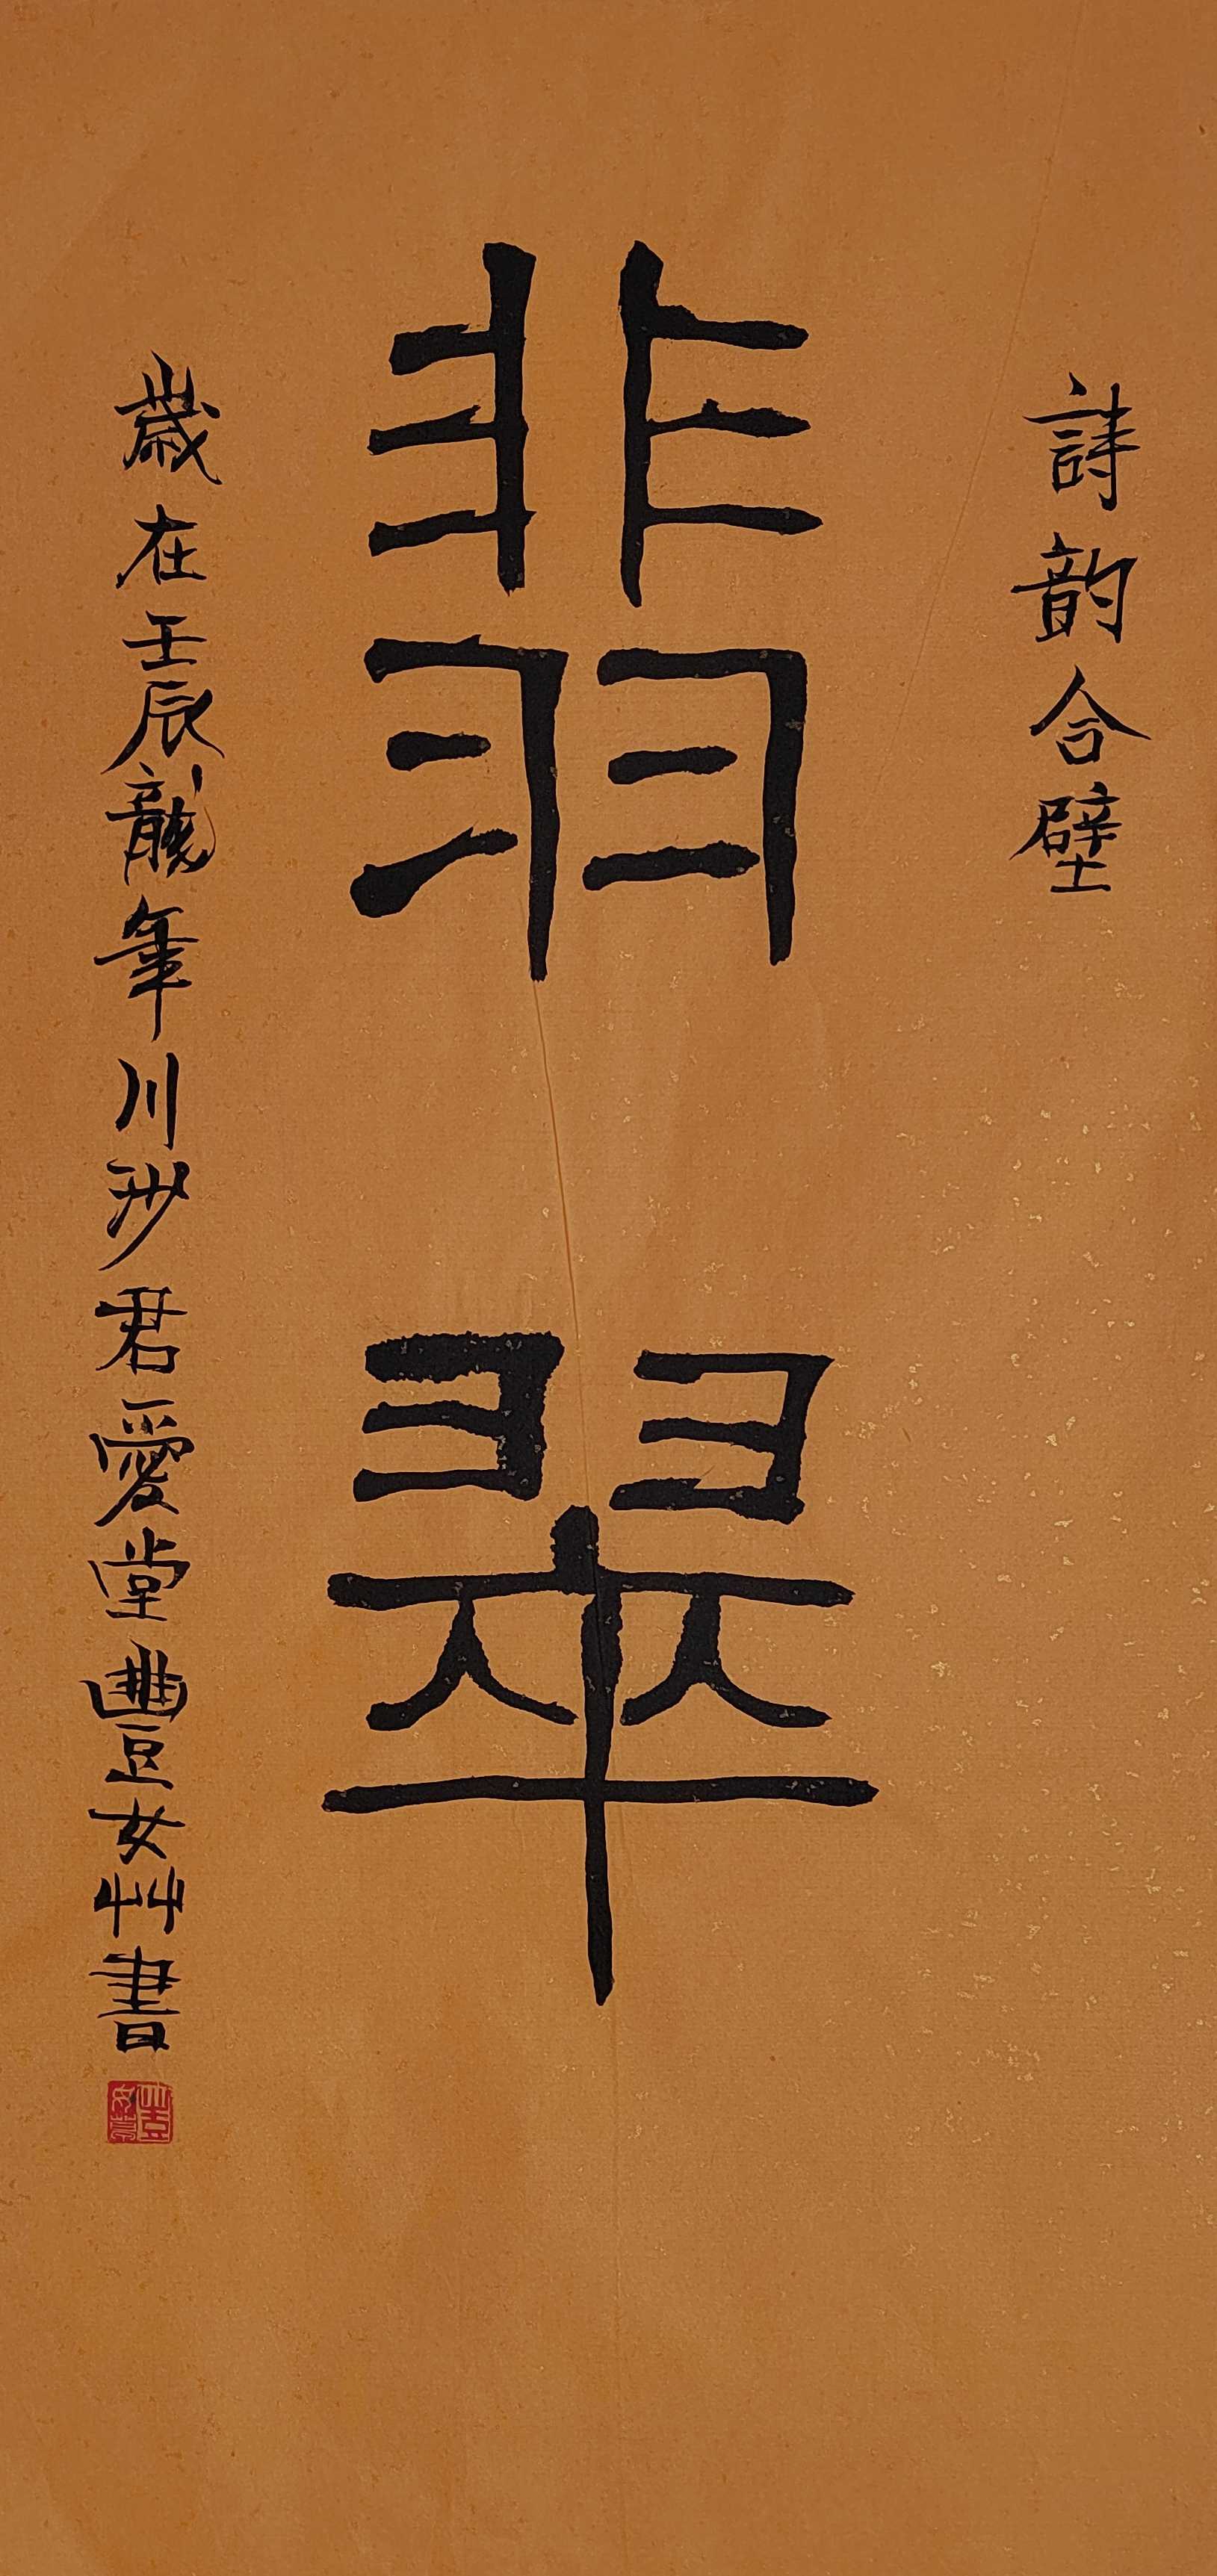 詩韵合壁
翡翠
歲在壬辰龍年川沙君愛堂豐女艸書